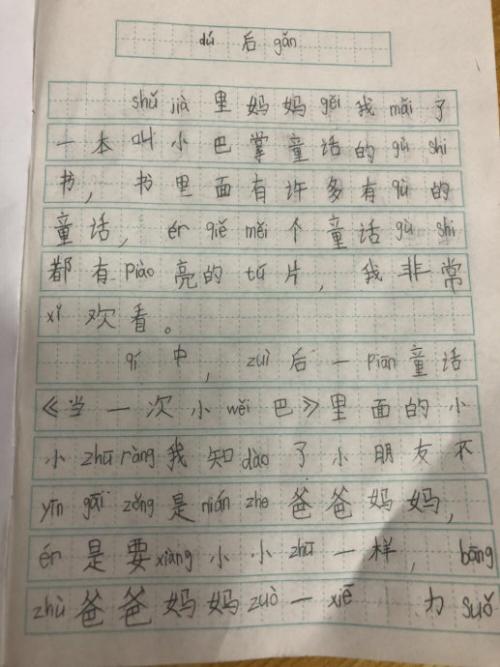 dú 后 gǎn
shǔ jià 里妈妈 gěi 我 mǎi 了
一本叫小巴掌童话的 gù shi
书，书里面有许多有 qù 的
童话，ér qiě měi 个童话 gù shi
都有 piào 亮的 tú 片，我非常
xǐ 欢看。
qí 中，zuì 后一 piān 童话
《当一次小 wěi 巴》里面的小
小 zhū ràng 我知 dào 了小朋友不
yīn gāi zǒng 是 nián zhe 爸爸妈妈，
ér 是要 xiàng 小小 zhū 一样，bāng
zhù 爸爸妈妈 zuò 一 xiē 力 suǒ